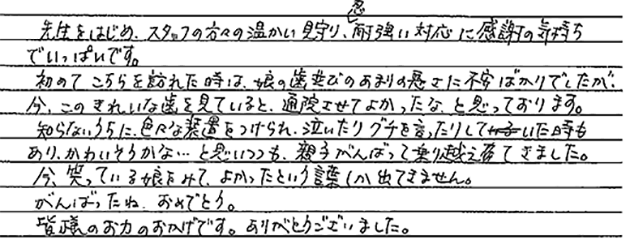 先生をはじめ、スタッフの方々の温かい見守り、忍耐強い対応に感謝の気持ち
でいっぱいです。
初めてこちらを訪れた時は、娘の歯並びのあまりの悪さに不安ばかりでしたが、
今、このきれいな歯を見ていると、通院させてよかったな、と思っております。
知らないうちに、色々な装置をつけられ、泣いたりグチを言ったりしていた時も
あり、かわいそうかな…と思いつつも、親子がんばって乗り越えてきました。
今、笑っている娘をみて、よかったという言葉しか出てきません。
がんばったね、おめでとう。
皆様のお力のおかげです。ありがとうございました。